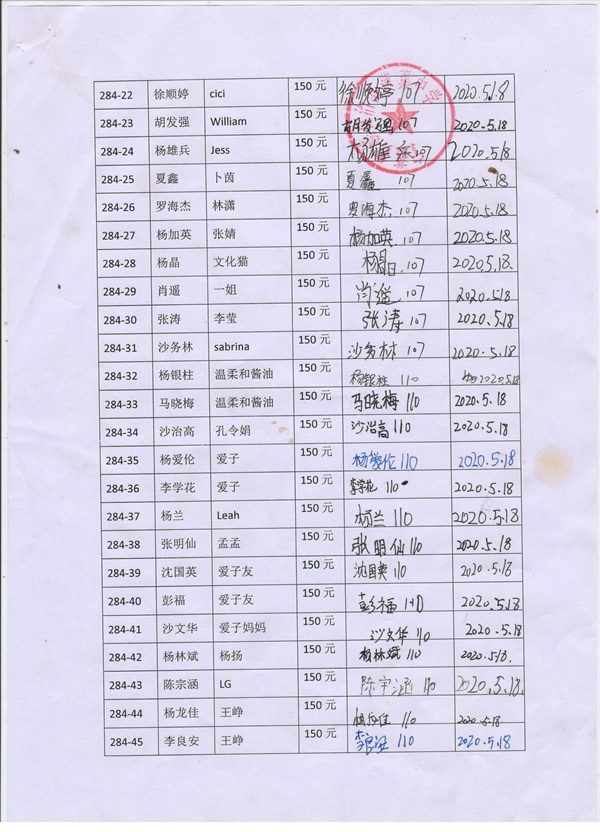 284-22 徐顺婷 cici 150 元 徐顺婷 107 2020.5.18
284-23 胡发强 William 150 元 胡发强 107 2020.5.18
284-24 杨雄兵 Jess 150 元 杨雄兵 107 2020.5.18
284-25 夏鑫 卜茵 150 元 夏鑫 107 2020.5.18
284-26 罗海杰 林潇 150 元 罗海杰 107 2020.5.18
284-27 杨加英 张婧 150 元 杨加英 107 2020.5.18
284-28 杨晶 文化猫 150 元 杨晶 107 2020.5.18.
284-29 肖遥 一姐 150 元 肖遥 107 2020.5.18
284-30 张涛 李莹 150 元 张涛 107 2020.5.18
284-31 沙务林 sabrina 150 元 沙务林 107 2020.5.18
284-32 杨银柱 温柔和酱油 150 元 杨银柱 110 2020.5.18
284-33 马晓梅 温柔和酱油 150 元 马晓梅 110 2020.5.18
284-34 沙治高 孔令娟 150 元 沙治高 110 2020.5.18
284-35 杨爱伦 爱子 150 元 杨爱伦 110 2020.5.18
284-36 李学花 爱子 150 元 李学花 110 2020.5.18
284-37 杨兰 Leah 150 元 杨兰 110 2020.5.18
284-38 张明仙 孟孟 150 元 张明仙 110 2020.5.18
284-39 沈国英 爱子友 150 元 沈国英 110 2020.5.18
284-40 彭福 爱子友 150 元 彭福 110 2020.5.18
284-41 沙文华 爱子妈妈 150 元 沙文华 110 2020.5.18
284-42 杨林斌 杨扬 150 元 杨林斌 110 2020.5.18.
284-43 陈宗涵 LG 150 元 陈宇涵 110 2020.5.18.
284-44 杨龙佳 王峥 150 元 110 2020.5.18
284-45 李良安 王峥 150 元 110 2020.5.18